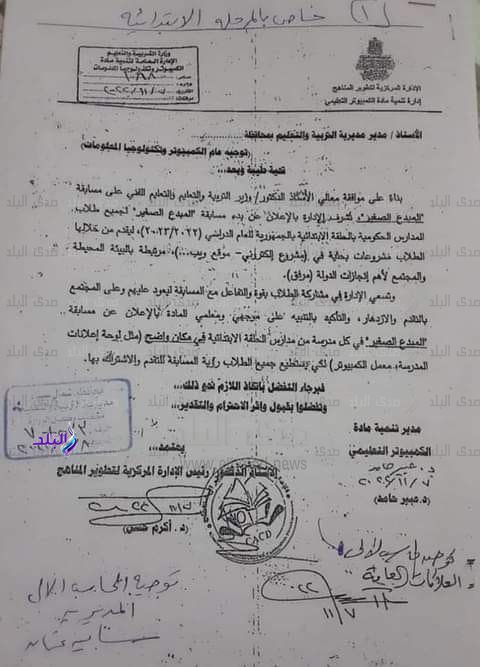 (١) خاص بالمرحلة الابتدائية
وزارة التربية والتعليم
الإدارة العامة لتنمية مادة
الكمبيوتر وتكنولوجيا المعلومات
الإدارة المركزية لتطوير المناهج
إدارة تنمية مادة الكمبيوتر التعليمي
الأستاذ / مدير مديرية التربية والتعليم بمحافظة
(توجيه عام الكمبيوتر وتكنولوجيا المعلومات)
تحية طيبة وبعد...
بناءً على موافقة معالي الأستاذ الدكتور/ وزير التربية والتعليم والتعليم الفني على مسابقة
"المبدع الصغير"، تتشرف الإدارة بالإعلان عن بدء مسابقة "المبدع الصغير" لجميع طلاب
المدارس الحكومية بالحلقة الابتدائية بالجمهورية للعام الدراسي (٢٠٢٣/٢٠٢٢)، ليتقدم من خلالها
الطلاب بمشروعات بحثية في (مشروع إلكتروني – موقع ويب...)، مرتبطة بالبيئة المحيطة
والمجتمع لأهم إنجازات الدولة (مرفق).
وتسعى الإدارة في مشاركة الطلاب بقوة والتفاعل مع المسابقة ليعود عليهم وعلى المجتمع
بالتقدم والازدهار، والتأكيد بالتنبيه على موجهي ومعلمي المادة بالإعلان عن مسابقة
"المبدع الصغير" في كل مدرسة من مدارس الحلقة الابتدائية في مكان واضح (مثل لوحة إعلانات
المدرسة، معمل الكمبيوتر) لكي يستطيع جميع الطلاب رؤية المسابقة للتقدم والاشتراك بها.
فبرجاء التفضل باتخاذ اللازم نحو ذلك...
وتفضلوا بقبول وافر الاحترام والتقدير...
مدير تنمية مادة
الكمبيوتر التعليمي
(د. عبير حامد)
يعتمد...
الأستاذ الدكتور/ رئيس الإدارة المركزية لتطوير المناهج
(د. أكرم حسن)
CACD
البلد
صدى البلد
توجيه الحاسب الآلي
المديرية